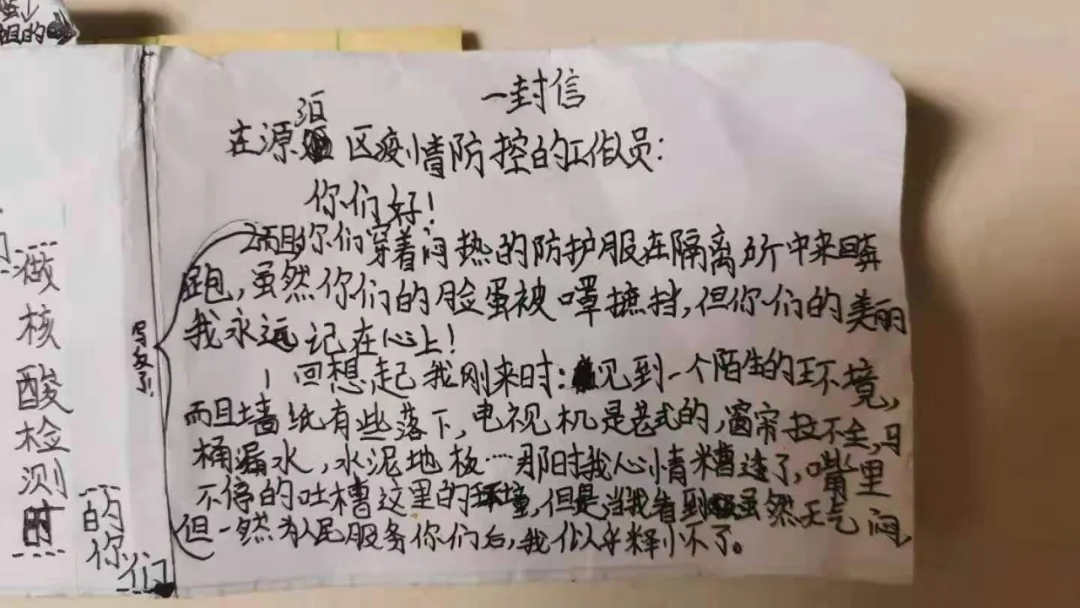 一封信
在源汇区疫情防控的工作员:
你们好!
2 而且你们穿着闷热的防护服在隔离所中来回奔
跑,虽然你们的脸蛋被罩摭挡,但你们的美丽
我永远记在心上!
1 回想起我刚来时:见到一个陌生的环境,
而且墙纸有些落下,电视机是老式的,窗帘拉不全,马
桶漏水,水泥地板……那时我心情糟透了,嘴里
不停的吐槽这里的环境,但是当我看到虽然天气闷,
但一然为人民服务你们后,我似乎释怀了。
写反了!
做核酸检测时
的你们